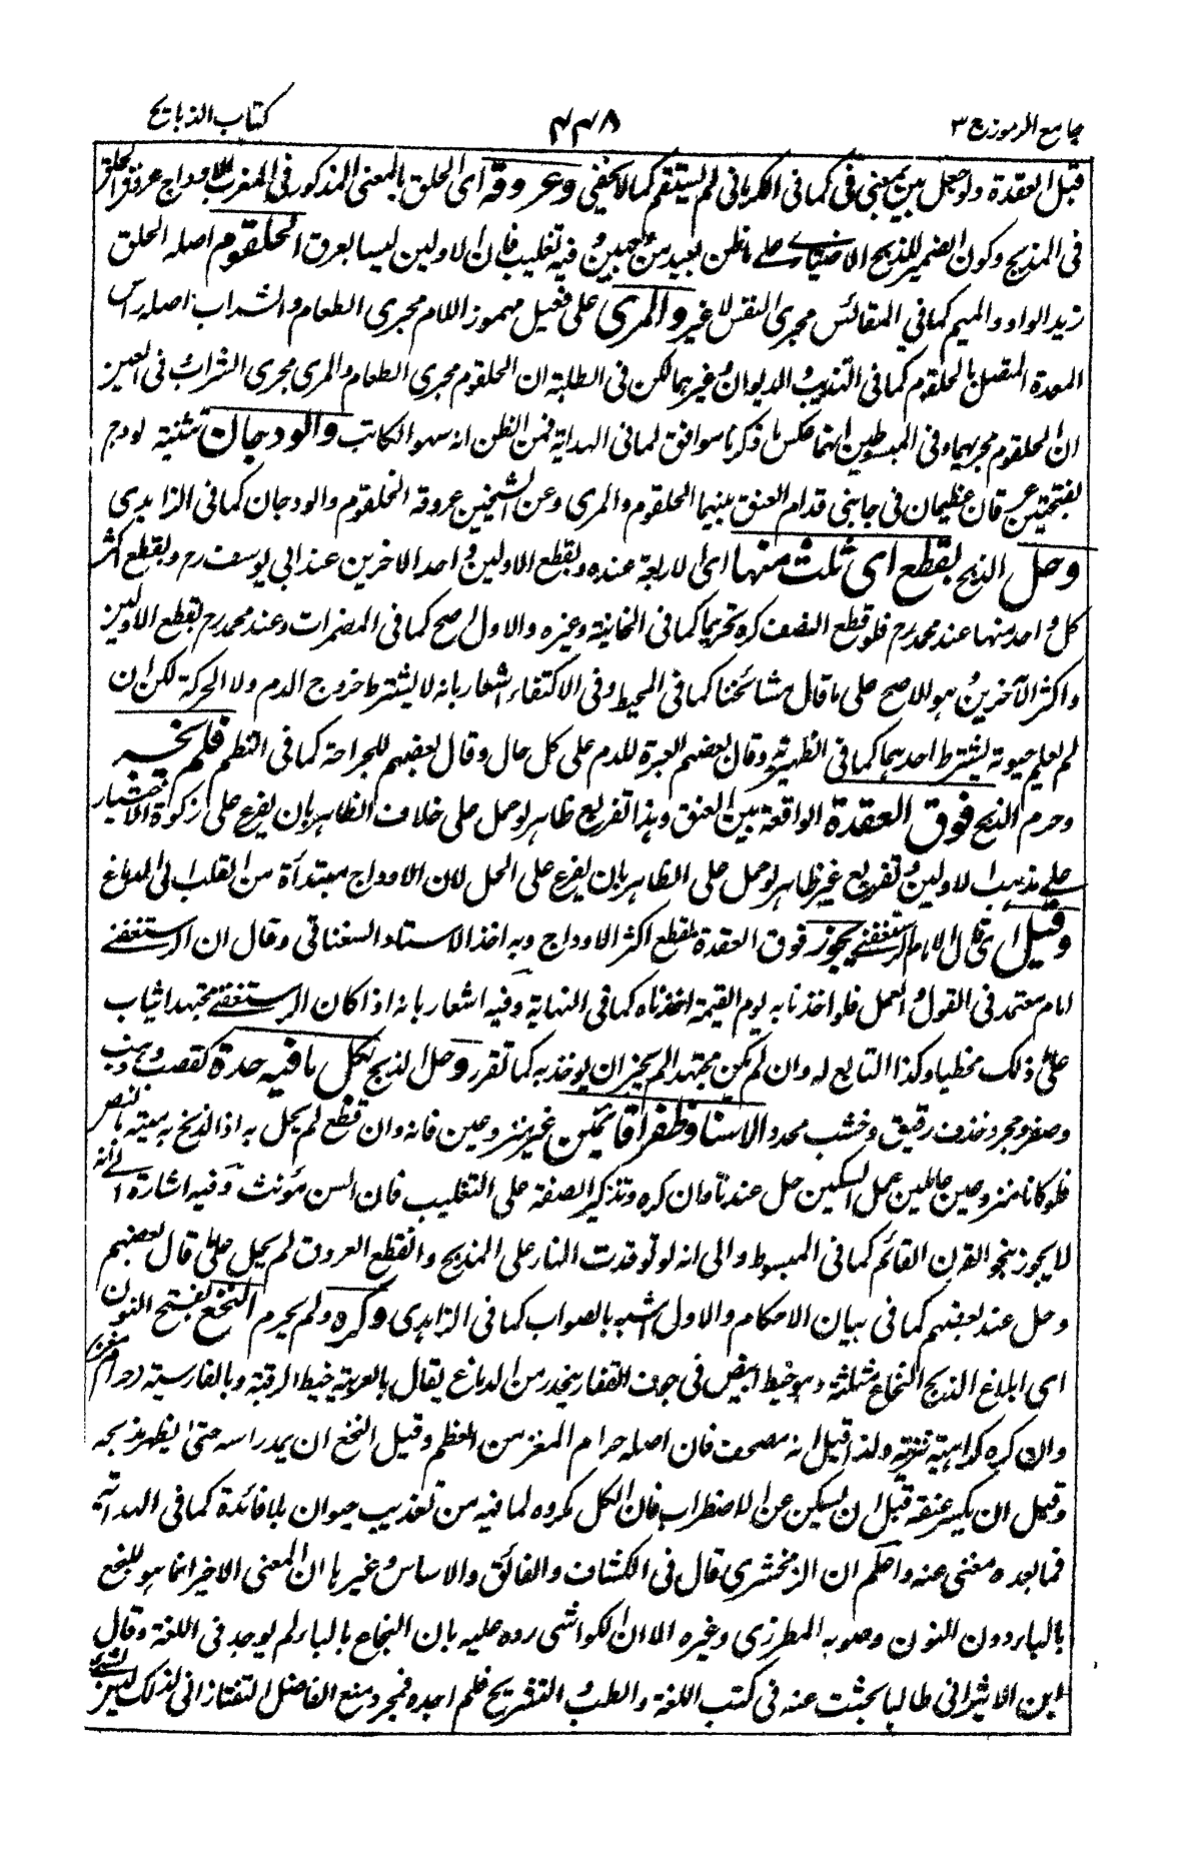 جامع الرموز ج ٣
٤٤٨
كتاب الذبايح
قبل العقدة ولو جعل بين بمعنى فى كما فى الكرمانى لم يستقم كما لا يخفى وعروقه اى الحلق بالمعنى المذكور فى المغرب الاوداج عروق الحلق
فى المذبح وكون الضمير للذبح الاختيارى على ما ظن بعيد من وفيه تغليب فان الاولين ليسا بعرق الحلقوم اصله الحلق
زيد الواو والميم كما فى المقائس مجرى النفس لا غير والمرى على فعيل مهموز اللام مجرى الطعام والشراب اصله راس
المعدة المتصل بالحلقوم كما فى التهذيب والديوان وغيرهما لكن فى الطلبة ان الحلقوم مجرى الطعام والمرى مجرى الشراب وفى العين
ان الحلقوم مجريهما وفى المبسوطين انهما عكس ما ذكرنا موافق لما فى الهداية فمن الظن انه سهو الكاتب والودجان تثنية لودج
بفتحتين عرقان عظيمان فى جانبى قدام العنق بينهما الحلقوم والمرى وعن الشيخين عروقه الحلقوم والودجان كما فى الزاهدى
وحل الذبح بقطع اى ثلث منها اى الاربعة عنده وبقطع الاولين واحد الاخرين عند ابى يوسف رح وبقطع اكثر
كل واحد منها عند محمد رح فلو قطع النصف كره تحريما كما فى الخانية وغيره والاول اصح كما فى المضمرات وعند محمد رح بقطع الاولين
واكثر الآخرين وهو الاصح على ما قال مشائخنا كما فى المحيط وفى الاكتفاء اشعار بانه لا يشترط خروج الدم ولا الحركة لكن ان
لم يعلم حيوته يشترط احدهما كما فى الظهيرية وقال بعضهم العبرة للدم على كل حال وقال بعضهم للجراحة كما فى النظم فلم يخبر
وحرم الذبح فوق العقدة الواقعة بين العنق وهذا تفريع ظاهر لو حمل على خلاف الظاهر بان يفرع على زكوة الاختيار
على مذهب الاولين وتفريع غير ظاهر لو حمل على الظاهر بان يفرع على الحل لان الاوداج مبتدأة من القلب الى الدماغ
وقيل اى قال الامام الرستغفنى يجوز فوق العقدة لقطع اكثر الاوداج وبه اخذ الاستاد السغناقى وقال ان الرستغفنى
امام معتمد فى القول والعمل فلو اخذنا به يوم القيمة اخذناه كما فى النهاية وفيه اشعار بانه اذا كان الرستغفنى مجتهدا يثاب
على ذلك مخطيا وكذا التابع له وان لم يكن مجتهدا لم يجز ان يوخذ به كما تقرر وحل الذبح بكل ما فيه حدة كقصب وذهب
وصفر وحجر وخذف رقيق وخشب محدد الا سنا وظفرا قائمين غير منزوعين فانه وان قطع لم يحل به اذا لذبح به ميتة بالنص
فلو كانا منزوعين عاملين عمل السكين حل عندنا وان كره وتذكير الصفة على التغليب فان السن مؤنث وفيه اشارة الى انه
لا يجوز بنحو القرن القائم كما فى المبسوط والى انه لو توقدت النار على المذبح وانقطع العروق لم يحل على قال بعضهم
وحل عند بعضهم كما فى بيان الاحكام والاول اشبه بالصواب كما فى الزاهدى وكره ولم يحرم النخع بفتح النون
اى ابلاغ الذبح النخاع مثلثة وهو خيط ابيض فى جوف الفقار ينحدر من الدماغ يقال بالعربية خيط الرقبة وبالفارسية حرام مغز
وان كره كراهية تنزيه ولذا قيل انه مصحف فان اصله حرام المغز من العظم وقيل النخع ان يمد راسه حتى يظهر مذبحه
وقيل ان يكسر عنقه قبل ان يسكن عن الاضطراب فان الكل مكروه لما فيه من تعذيب حيوان بلا فائدة كما فى الهداية
فما بعده مغنى عنه واعلم ان الزمخشرى قال فى الكشاف والفائق والاساس وغيرها ان المعنى الاخير انما هو للبخع
بالباء دون النون وصوبه المطرزى وغيره الا ان الكواشى رده عليه بان البخاع بالباء لم يوجد فى اللغة وقال
ابن الاثير انى طالما بحثت عنه فى كتب اللغة والطب والتشريح فلم اجده فمجرد منع الفاضل التفتازانى لذلك ليس بشئ